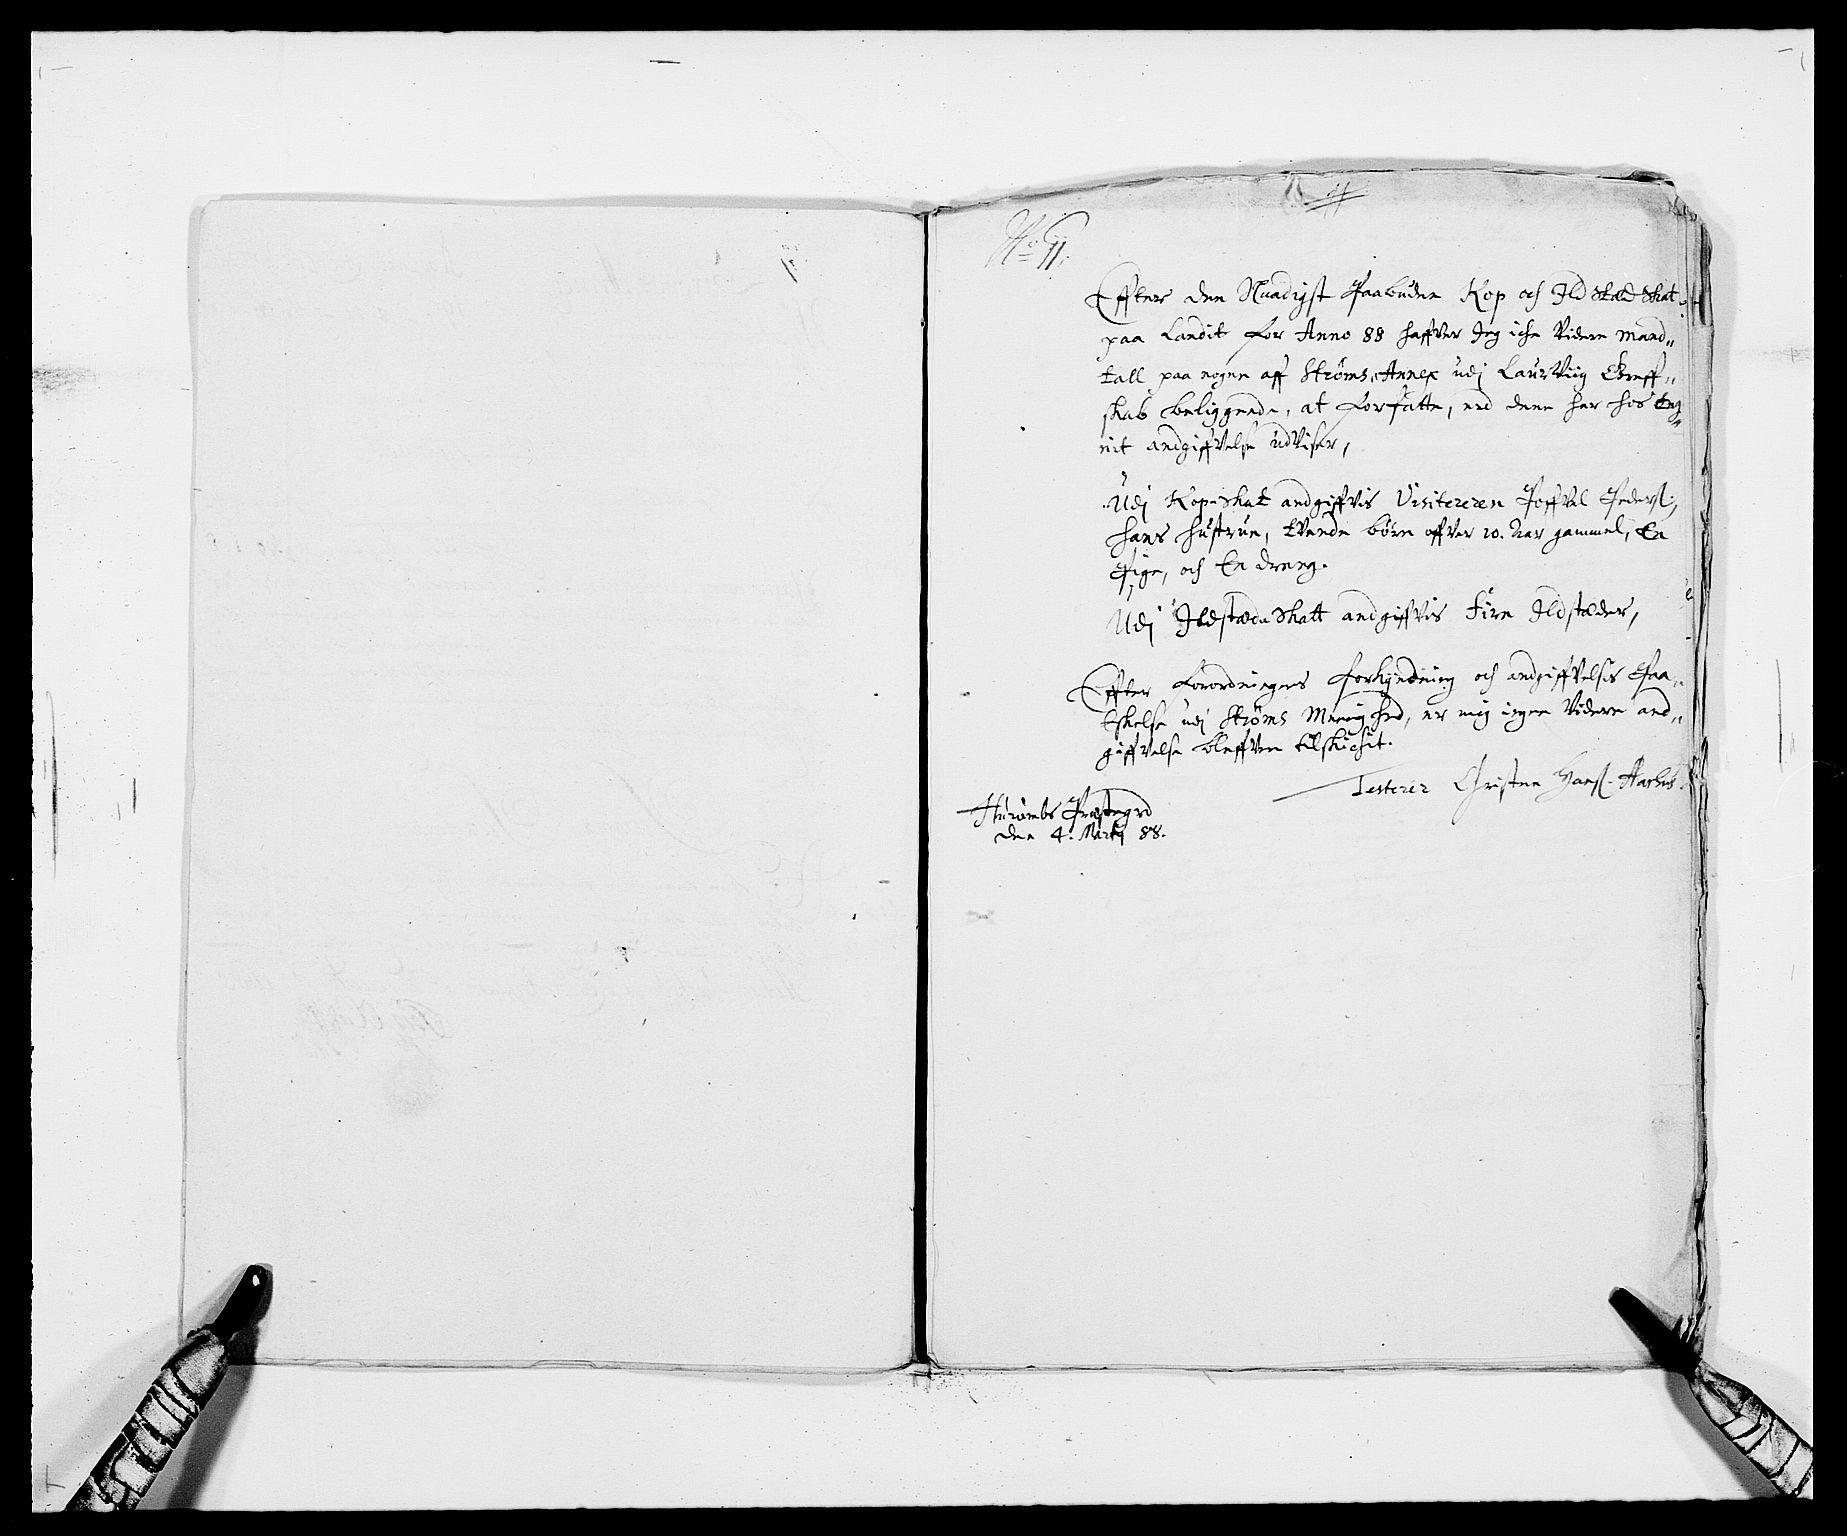 No 11.
Effter den Naadigst Paabuden Kop och Ild Stæd Skat
paa Landit for Anno 88 haffver Jeg iche Videre Mand„
tall paa nogen aff Strøms Annex udj LaurViig Greff„
skab beliggende, at forfatte, end denne her hos
andgiffvelse udViser,
Udj KopeSkat andgiffvis Visitereren Poffvel Peders:,
hans hustrue, tvende børn offver 10. Aar gammel, En
Pige, och En dreng.
Udj Ildstæde Skatt andgiffvis Fire Ildstæder,
Effter Forordningens forkyndning och andgiffvelsis Paa„
Eskelse udj Strøms Meenighed, er mig ingen Videre and„
giffvelse bleffven tilskichit.
Testerer Christen Hans:
Hurombs Præstegrd
den 4. Martj 88.